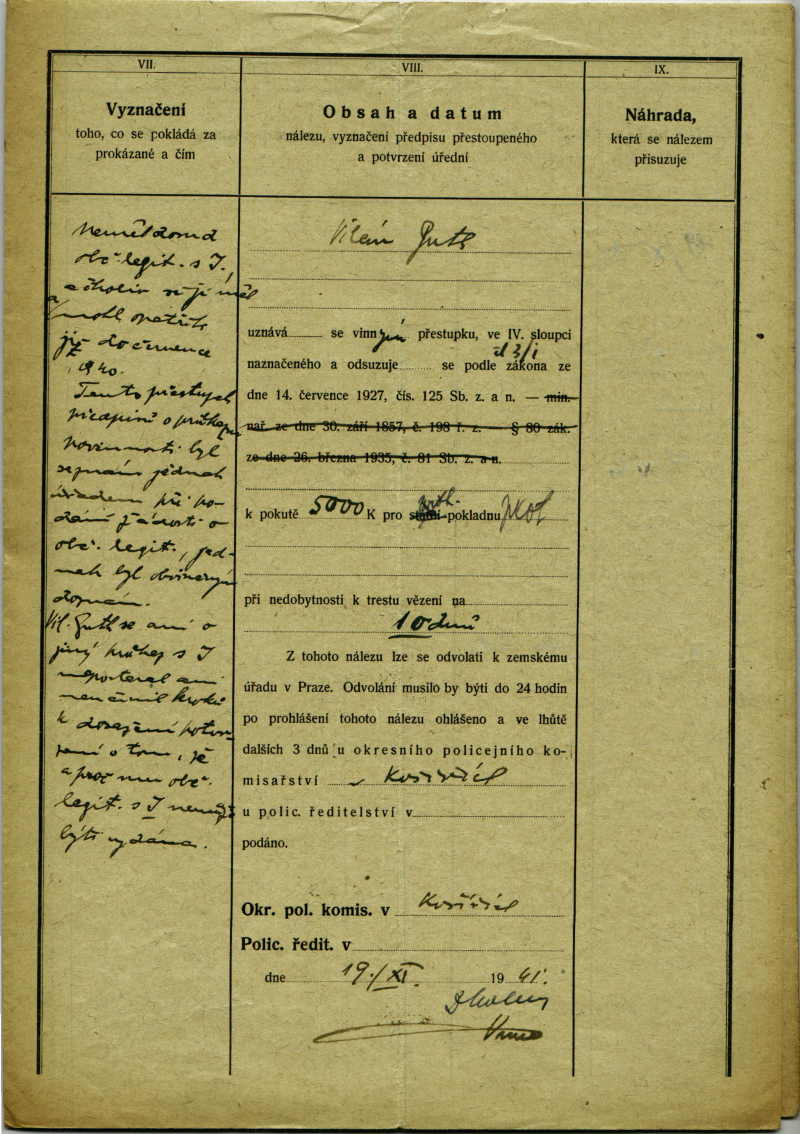 VII.
Vyznačení
toho, co se pokládá za
prokázané a čím
Neměl dosud
obč. legit. s J.,
ačkoliv si ji měl
a mohl opatřiti
již do července
1940.
Tento přestupek
předpisů o
povinnosti byl
zjednak
úřadem při po-
dání žádosti o
obč. legit., jed-
nak byl obviněným
doznán.
Vil. Gutl se ani o
jiný průkaz s J
nepostaral ani
neučinil kroků
k dosažení potvr-
zení o tom, že
a proč mu obč.
legit. s J nemůže
býti vydána.
VIII.
Obsah a datum
nálezu, vyznačení předpisu přestoupeného
a potvrzení úřední
Vilém Gutl
uznává se vinným přestupku, ve IV. sloupci
naznačeného a odsuzuje se podle čl 3/1 zákona ze
dne 14. července 1927, čís. 125 Sb. z. a n. — min.
nař. ze dne 30. září 1857, č. 198 ř. z. — § 80 zák.
ze dne 26. března 1935, č. 81 Sb. z. a n.
k pokutě 5000 K pro státní pokladnu
při nedobytnosti k trestu vězení na
10 dnů
Z tohoto nálezu lze se odvolati k zemskému
úřadu v Praze. Odvolání musilo by býti do 24 hodin
po prohlášení tohoto nálezu ohlášeno a ve lhůtě
dalších 3 dnů u okresního policejního ko-
misařství v Košířích
u polic. ředitelství v
podáno.
Okr. pol. komis. v Košířích
Polic. ředit. v
dne 19./XI. 1941.
IX.
Náhrada,
která se nálezem
přisuzuje